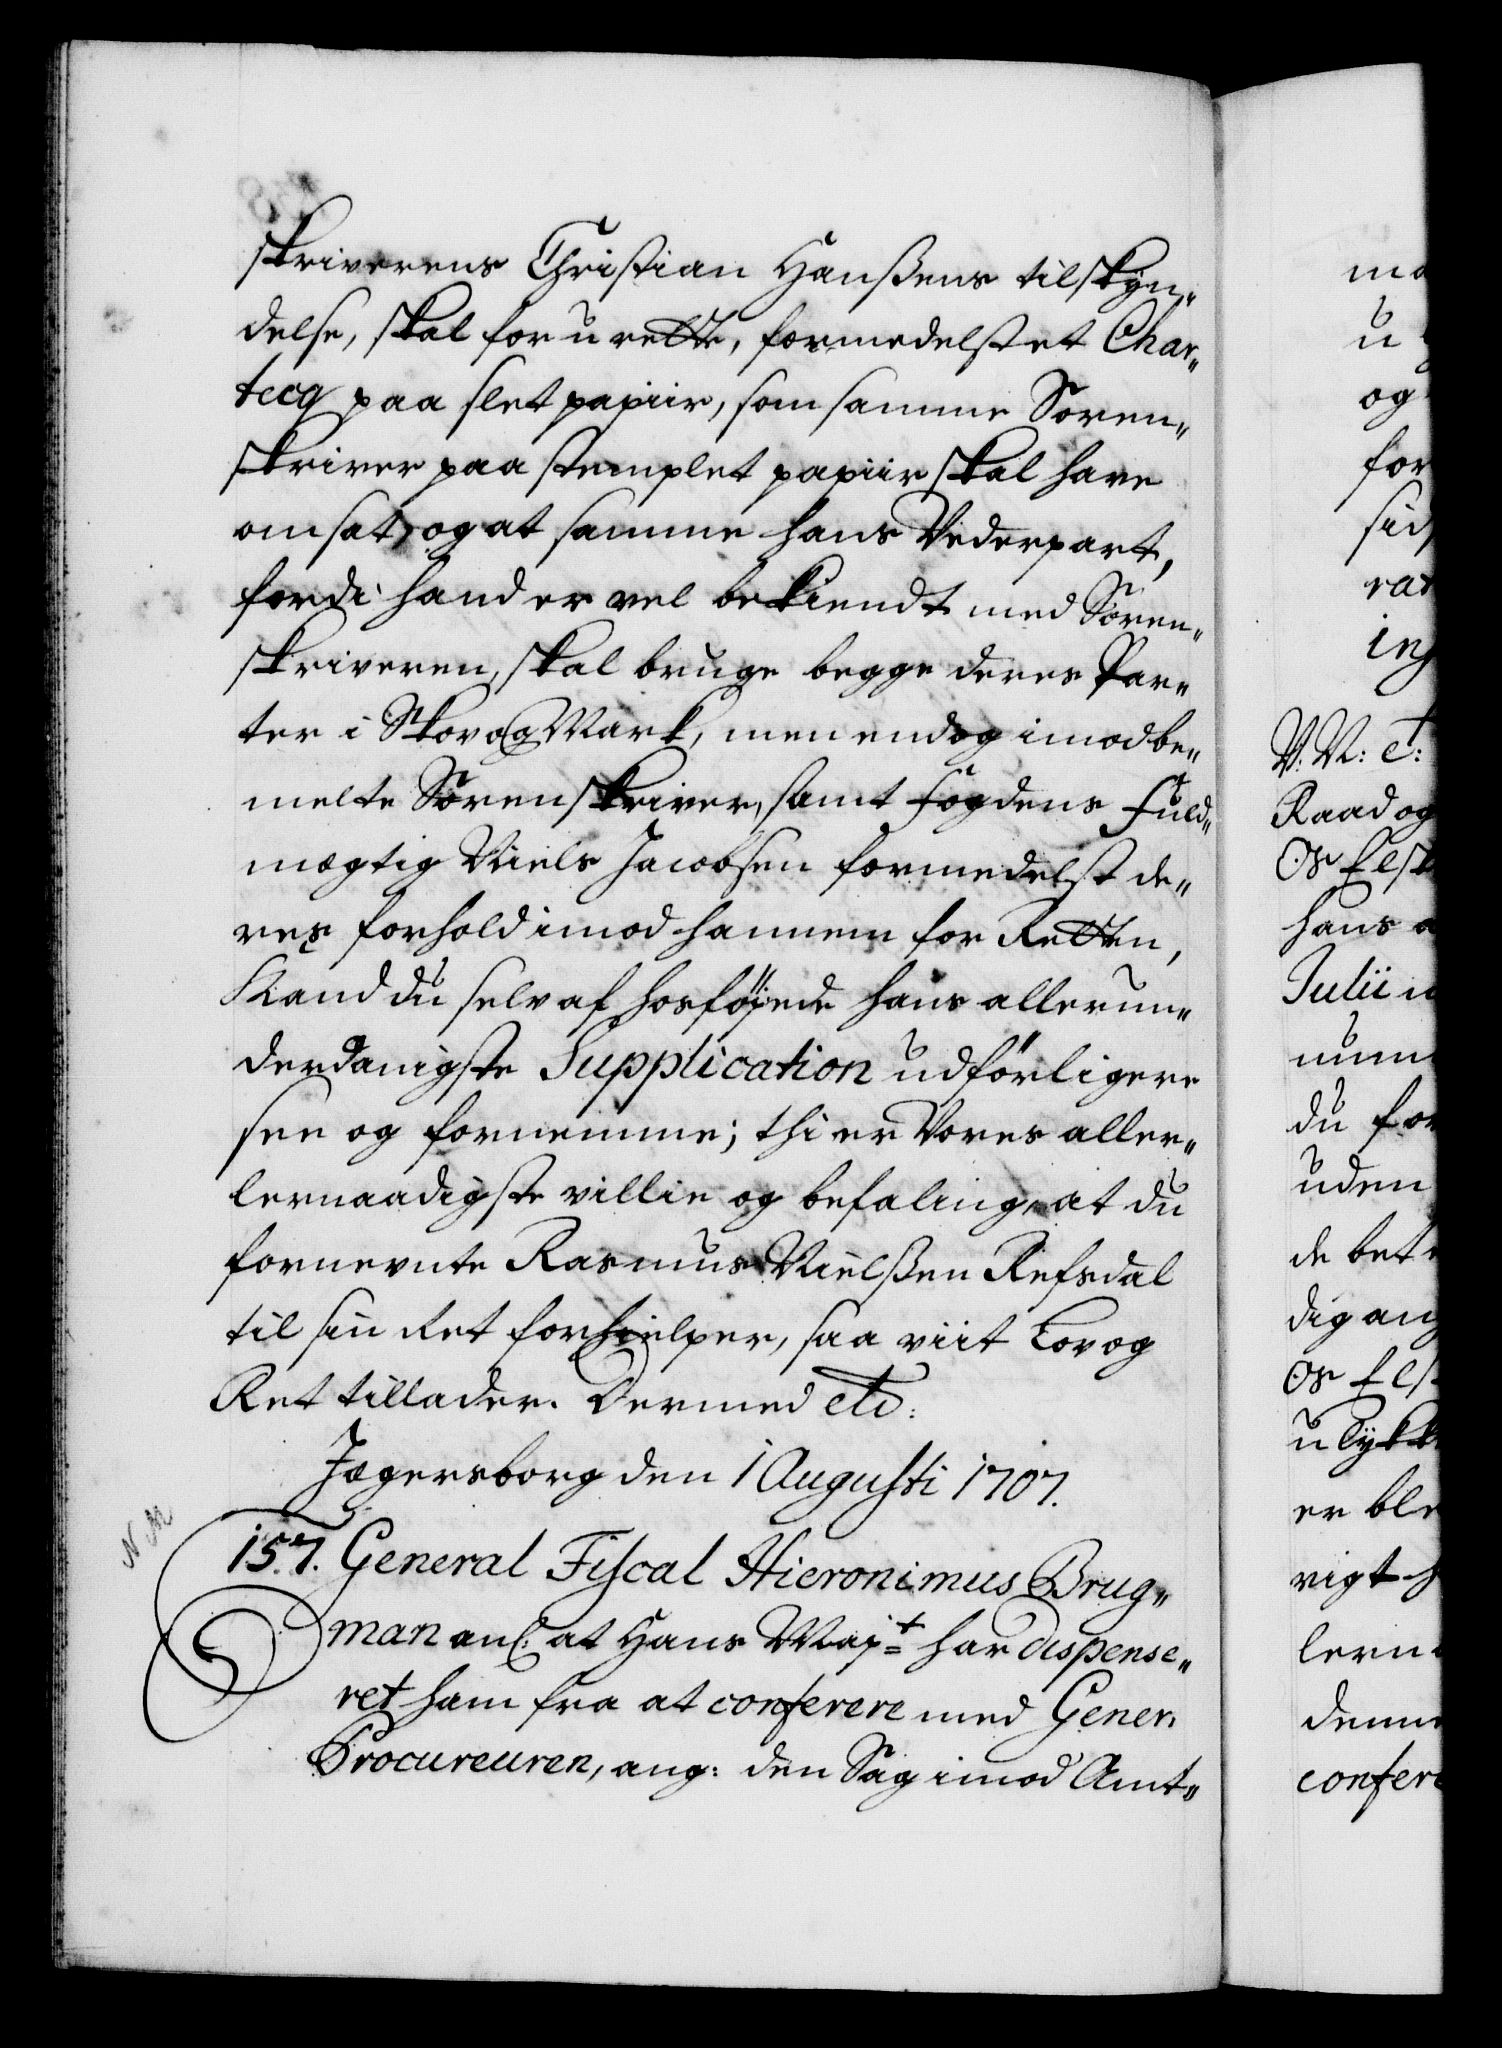 skriverens Christian Hanßens tilskÿn„
delse, skal for u rette, formedelst et Char„
tecq paa slet papiir, som samme Soren„
skriver paa stemplet papiir skal have
omsat, og at samme hans Vederpart,
fordi hand er vel bekiendt med Soren„
skriveren, skal bruge begge deres Par„
ter i Skov og Mark, men endog imod be„
melte Sorenskriver, samt Fogdens Fuld„
mægtig Niels Jacobsen formedelst de„
res forhold imod hannem for Retten,
Kand du selv af hosføjede hans allerun„
derdanigste Supplication udførligere
see og fornemme; thi er Vores aller„
lernaadigste villie og befaling, at du
fornevnte Rasmus Nielßen Refsdal
til sin Ret forhielper, saa viit Lov og
Ret tillader. Dermed etc:
Jægersborg den 1 Augusti 1707.
N M
157. General Fiscal Hieronimus Brug„
man anl: at Hans Majt har dispense„
ret ham fra at conferere med Gener:
Procureuren, ang: den Sag imod Amt„
u
og
for
V: N: et:
Raad og
Os Elsk
hans a
Julii
du for
uden
de bet
dig ang
Os Els
u lykk
er ble
rigt
lern
confere